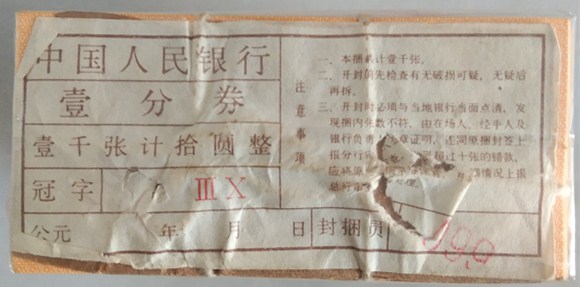 中国人民银行
壹分券
壹千张计拾圆整
冠字 ⅢⅩ
公元 年 月 日 封捆员
注意事项
一、本捆 计壹千张。
二、开封前先检查有无破损可疑，无疑后
再拆。
三、开封时必须与当地银行当面点清，发
现捆内张数不符，由在场人、经手人及
银行负责人 章证明，连同原捆封签上
报分行 超过十张的错款，
应将原 情况上报
总行